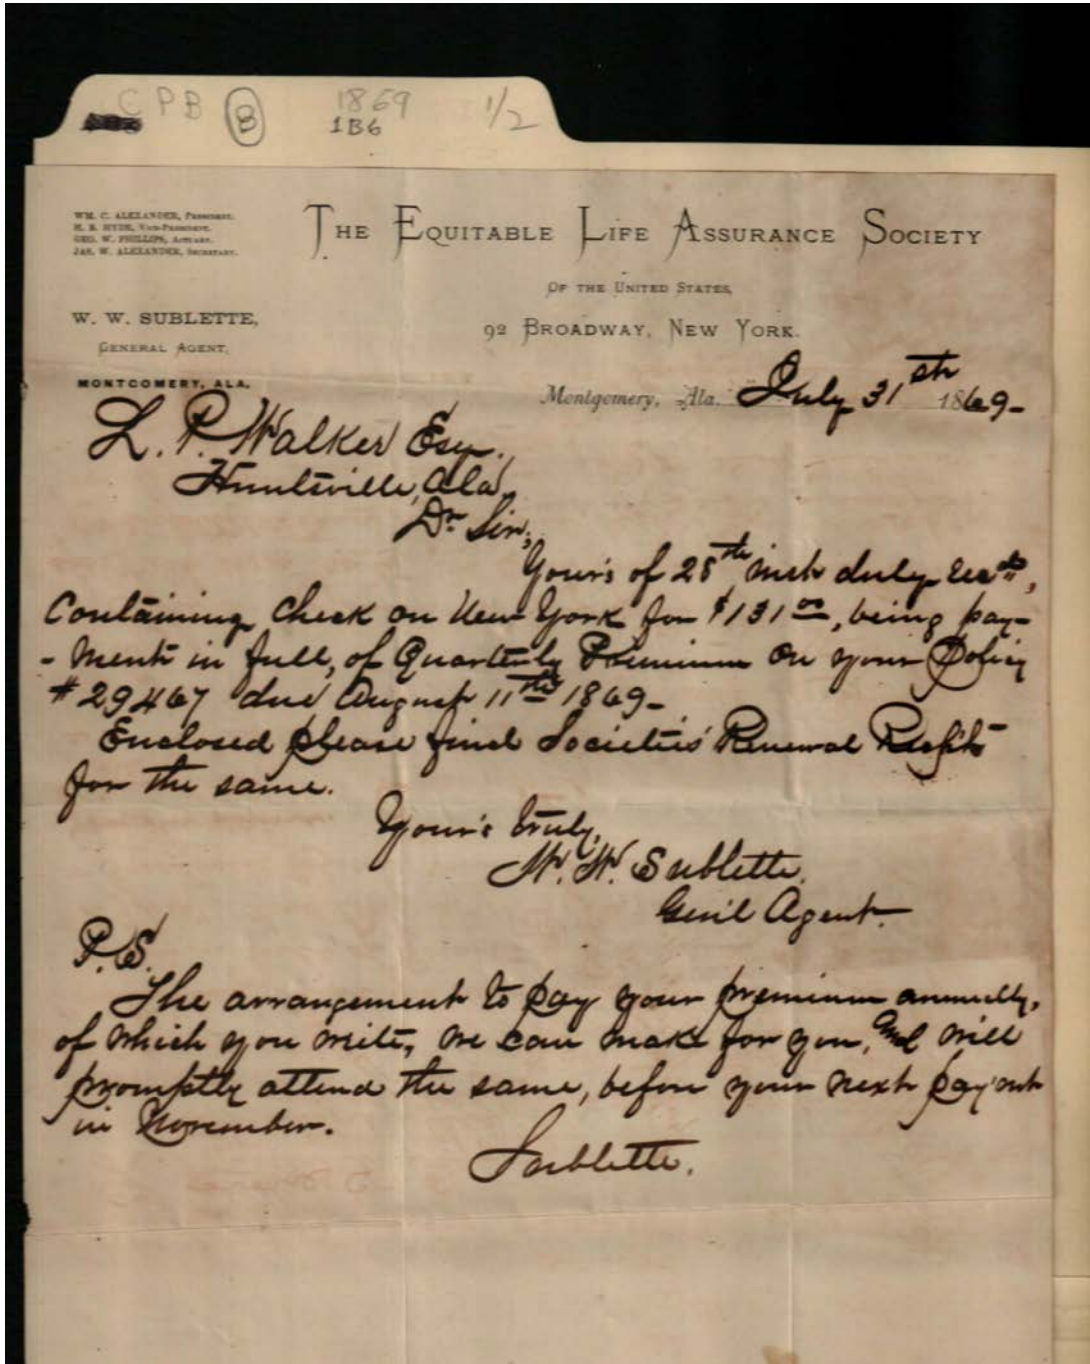 C P B B 1869 1/2
1B6
WM. C. ALEXANDER, PRESIDENT.
H. B. HYDE, VICE-PRESIDENT.
GEO. W. PHILLIPS, ACTUARY.
JAS. W. ALEXANDER, SECRETARY.
THE EQUITABLE LIFE ASSURANCE SOCIETY
OF THE UNITED STATES,
92 BROADWAY, NEW YORK.
W. W. SUBLETTE,
GENERAL AGENT,
MONTGOMERY, ALA.
Montgomery, Ala. July 31th 1869-
L. P. Walker Esq.,
Huntsville, Ala.
Dr Sir,
Your's of 28th inst duly recd,
Containing Check on New York for $131 00, being pay-
-ment in full, of Quarterly Premium on your Policy
#29467 due August 11th 1869-
Enclosed please find Societies' Renewal
for the same.
Your's truly,
W. W. Sublette,
Gen'l Agent.
P.S.
The arrangement to pay your premium annually,
of which you write, we can make for you, and will
promptly attend the same, before your next pay'ont
in November.
Sublette.